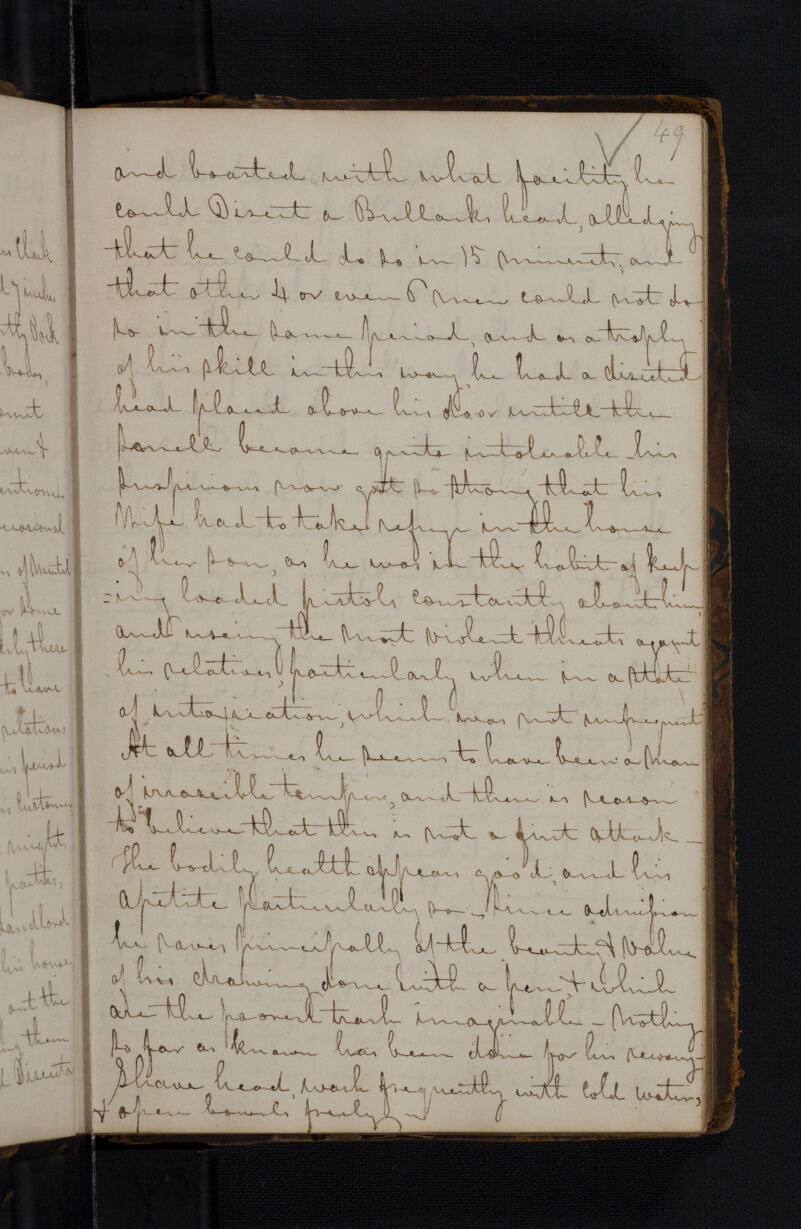 49
and boasted with what facility he
could Disect a Bullocks head, alledging
that he could do so in 15 minuets, and
that other 4 or even 6 men could not do
so in the same period, and as a trophy
of his skill in this way, he had a disected
head placed above his door untill the
smell became quite intolerable his
suspicions now gott so strong that his
Wife had to take refuge in the house
of her son, as he was in the habit of keep
=ing loaded pistols constantly about him,
and useing the most violent threats against
his relatives, particularly when in a state
of intoxication, which was not unfrequent
At all times he seems to have been a man
of irrascible temper, and there is reason
to believe that this is not a first attack –
The bodily health appears good, and his
apetite particularly so – Since admission
he raves principally of the beauty & value
of his drawing done with a pen, & which
are the poorest trash imaginable – Nothing
so far as known has been done for his recovery –
Shave head, wash frequently with cold water,
& open bowels freely –
Clark
7 inches
Back
of Mental
or some
there
to leave
relations
period
Customers
might
parties,
Landlord
his house
out the
them
Disector